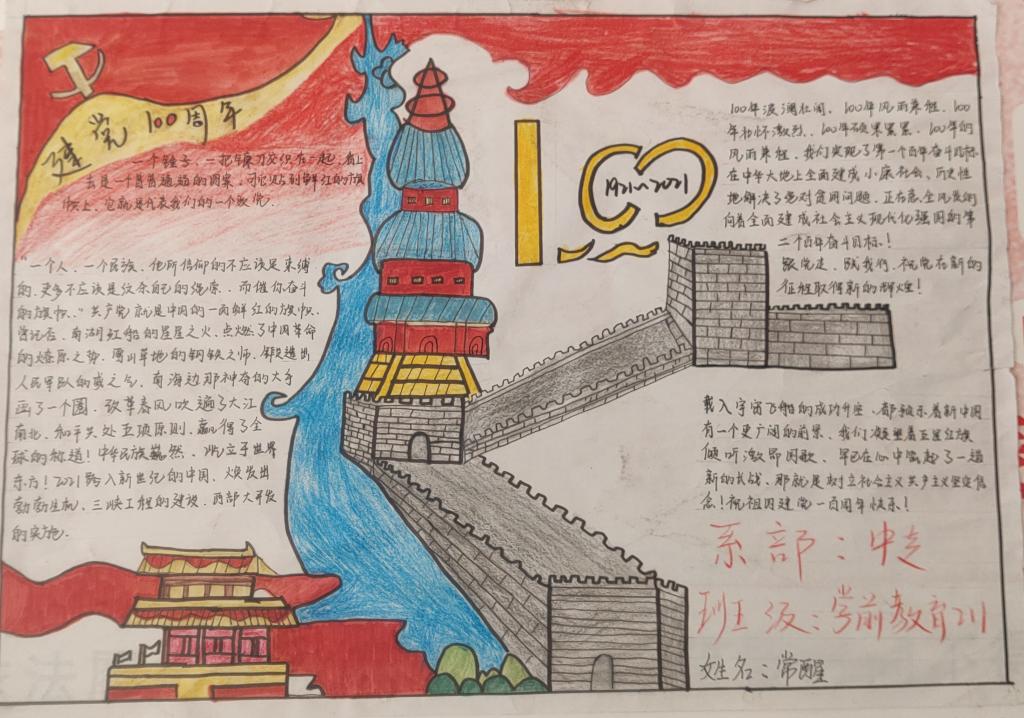 建党100周年
一个锤子、一把镰刀交织在一起,看上
去是一个普普通通的图案,可它贴到鲜红的旗
帜上,它就是代表我们的一个政党.
“一个人、一个民族,他所信仰的不应该是束缚
的,更多不应该是纹杀自己的绳索,而催你奋斗
的旗帜.”共产党就是中国的一面鲜红的旗帜.
曾记否,南湖红船的星星之火,点燃了中国革命
的燎原之势.雪山草地的钢铁之师,锻造出
人民军队的威之气,南海边那神奇的大手
画了一个圆,改革春风吹遍了大江
南北,和平共处五项原则,赢得了全
球的称道!中华民族巍然、屹立于世界
东方!2021跨入新世纪的中国,焕发出
勃勃生机,三峡工程的建设,西部大开发
的实施.
100
1921~2021
100年波澜壮阔、100年风雨兼程,100
年壮怀激烈、100年硕果累累,100年的
风雨兼程,我们实现了第一个百年奋斗目标
在中华大地上全面建成小康社会,历史性
地解决了绝对贫困问题,正在意全风发的
向着全面建成社会主义现代化强国的第
二个百年奋斗目标!
跟党走,践我们,祝党在新的
征程取得新的辉煌!
载人宇宙飞船的成功升空,都预示着新中国
有一个更广阔的前景,我们凝望着五星红旗
倾听激昂国歌,早已在心中筑起了一道
新的长城,那就是树立社会主义共产主义坚定信
念!祝祖国建党一百周年快乐!
系部:中专
班级:学前教育211
姓名:常醒